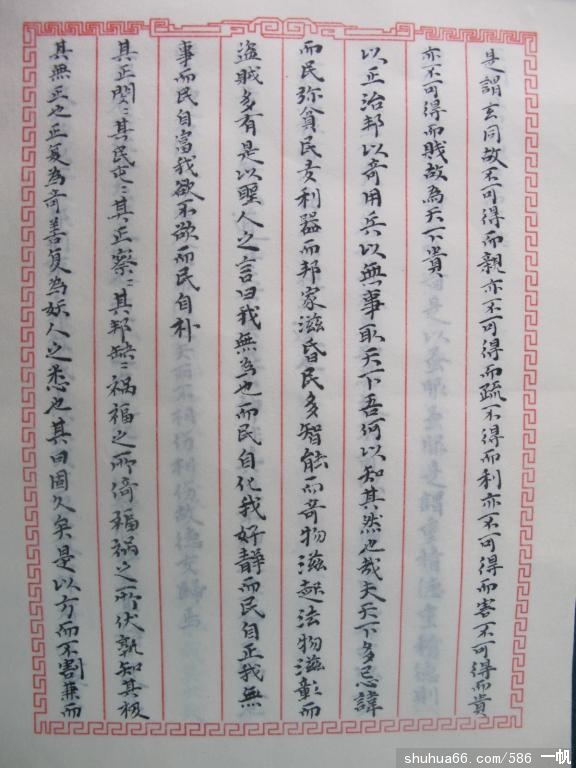 是謂玄同故不可得而親亦不可得而疏不得而利亦不可得而害不可得而貴
亦不可得而賎故為天下貴
以正治邦以奇用兵以無事取天下吾何以知其然也哉夫天下多忌諱
而民弥貧民多利器而邦家滋昏民多智能而奇物滋起法物滋彰而
盗賊多有是以聖人之言曰我無為也而民自化我好静而民自正我無
事而民自富我欲不欲而民自朴
其正閔〻其民屯〻其正察〻其邦缺〻祸福之所倚福祸之所伏孰知其极
其無正也正复為奇善复為妖人之悉也其日固久矣是以方而不割兼而
shuhua66.com/586 一帆